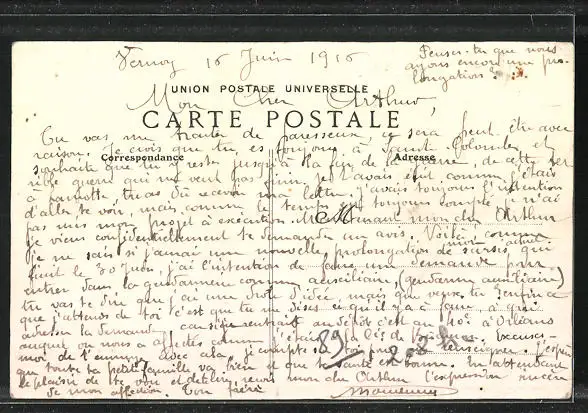 Vernoy 16 Juin 1916
Penses-tu que nous
ayons encore une pro-
longation ?
UNION POSTALE UNIVERSELLE
Mon Cher Arthur,
CARTE POSTALE
Tu vas me traiter de paresseux, ce sera peut être avec
raison. Je crois que tu es toujours à Sainte Colombe, et
Correspondance
Adresse
souhaite que tu y restes jusqu'à la fin de la guerre, de cette ter
rible guerre qui ne veut pas finir. Je t'avais écrit comme j'étais
à tu as dû recevoir ma lettre. J'avais toujours l'intention
d'aller te voir, mais comme le temps est toujours compté je n'ai
pas mis mon projet à exécution. Maintenant mon cher Arthur
je viens confidentiellement te demander un avis. Voilà, comme
je ne sais si j'aurai une nouvelle prolongation de sursis qui
finit le 30 Juin, j'ai l'intention de faire une demande pour
entrer dans la gendarmerie comme auxiliaire, (gendarme auxiliaire)
tu vas te dire que j'ai une drôle d'idée, mais que veux-tu. Enfin ce
que j'attends de toi c'est que tu me dises ce qu'il y a à faire, à qui
adresser la demande car si je rentrait au dépôt c'est au 40e à Orléans
auquel on nous a affectés comme j'étais à la Cie de excuses-
moi de l'ennuyer avec cela, je compte sur toi pour me renseigner. J'espère
que toute ta petite famille va bien et que ta santé est bonne. En attendant
le plaisir de te voir et de te lire, reçois mon cher Arthur l'expression sincère
de mon affection. Ton frère